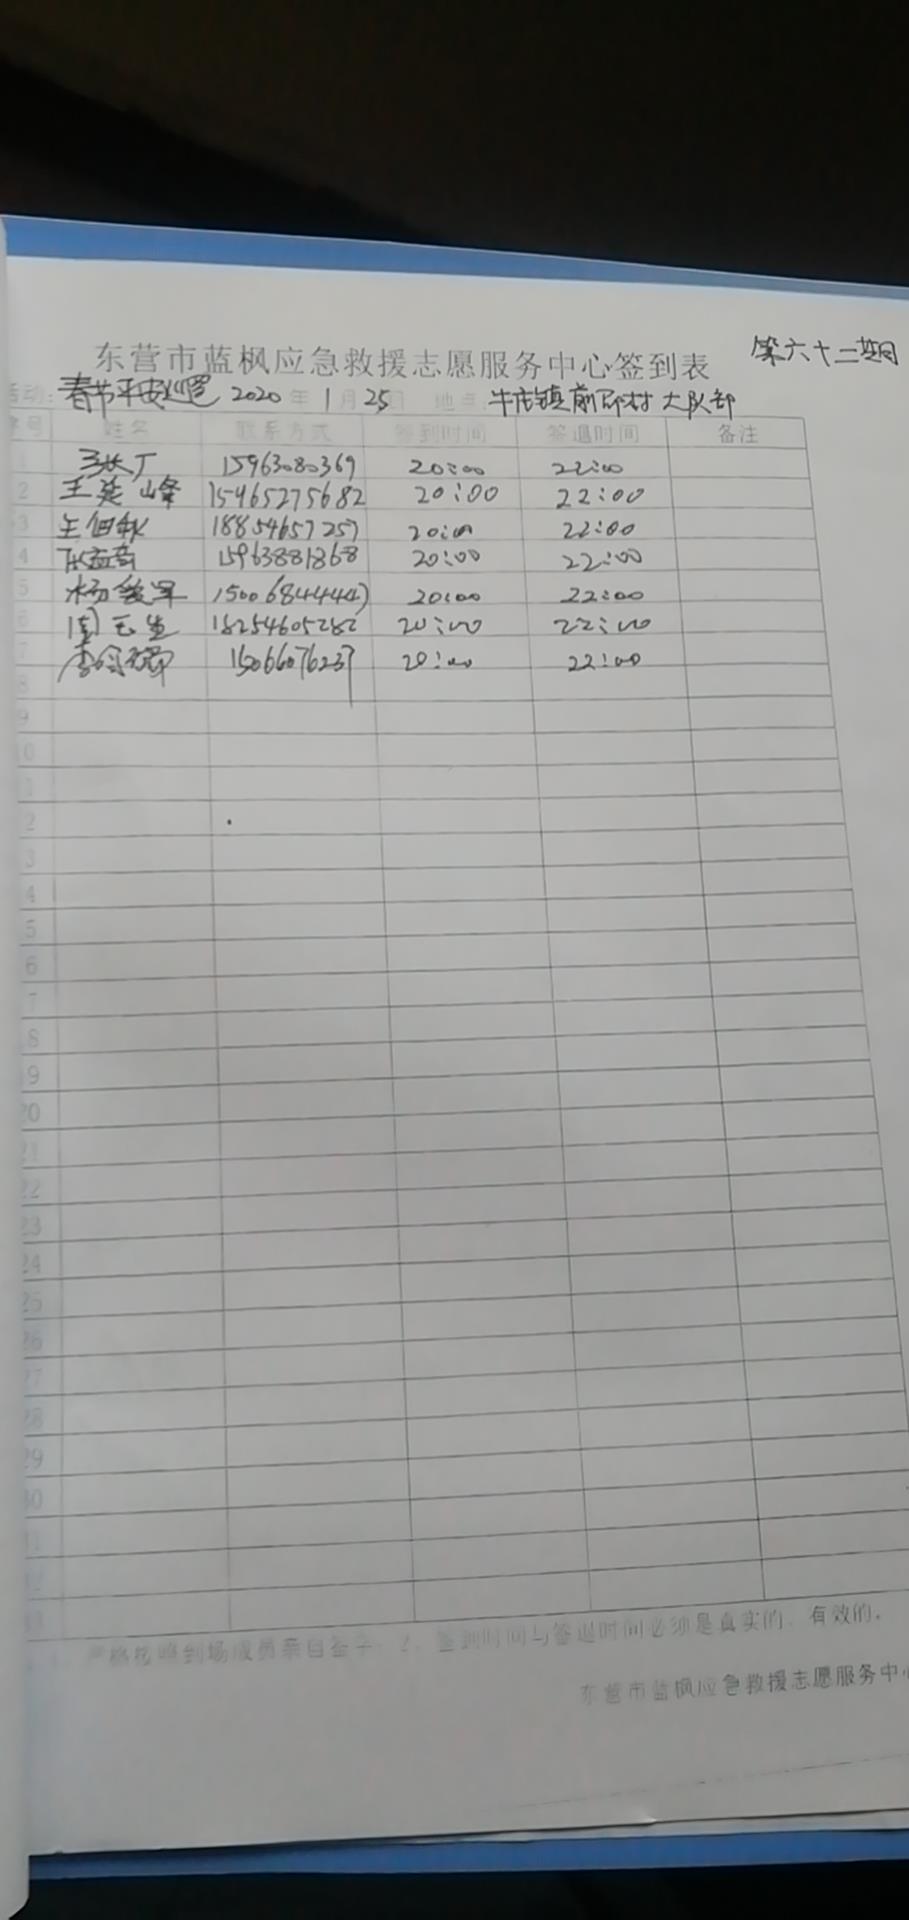 东营市蓝枫应急救援志愿服务中心签到表 第六十二期
活动：春节平安巡逻 2020年1月25日 地点：牛庄镇前邵村大队部
序号 姓名 联系方式 签到时间 签退时间 备注
15963080369 20:00 22:00
2 王英峰 15465275682 20:00 22:00
3 18854657257 20:00 22:00
4 15963881368 20:00 22:00
5 杨俊军 20:00 22:00
6 周玉生 18254605282 20:00 22:00
7 15066076237 20:00 22:00
8
9
10
11
12
13
14
15
16
17
18
19
20
21
22
23
24
25
26
27
28
29
30
31
32
33
1、严格按照到场成员亲自签字；2、签到时间与签退时间必须是真实的、有效的。
东营市蓝枫应急救援志愿服务中心